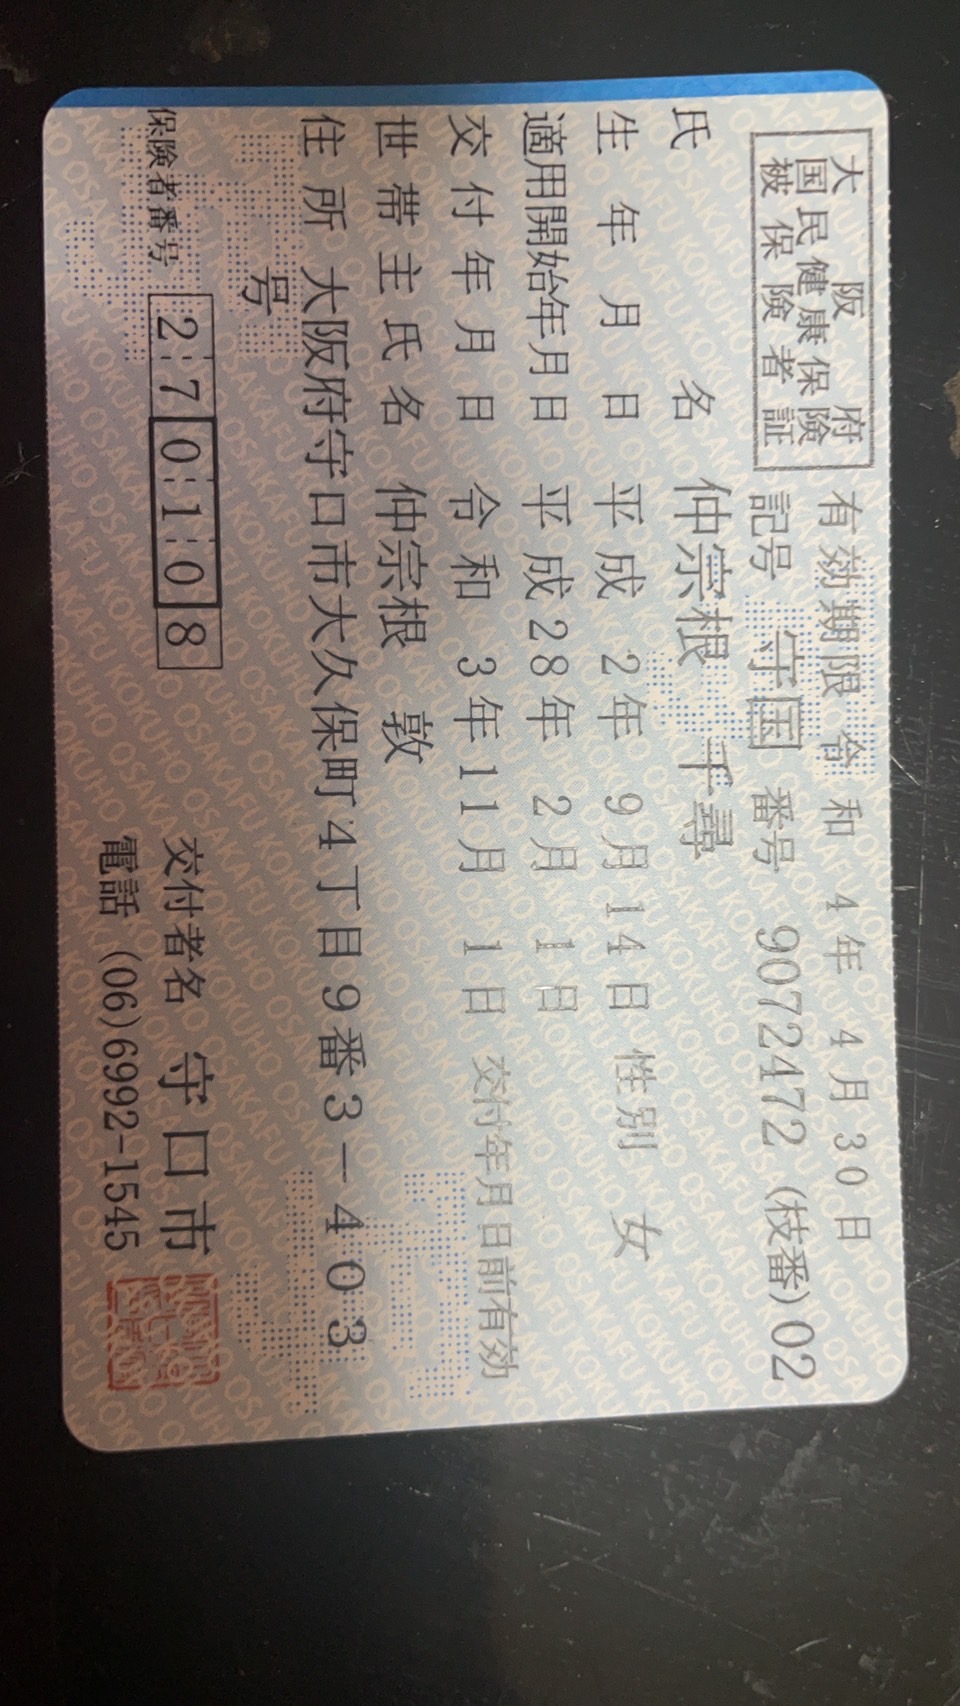 大阪府
国民健康保険
被保険者証
有効期限 令和 4年 4月30日
記号 守国 番号 9072472 (枝番)02
氏名 仲宗根 千尋
生年月日 平成 2年 9月14日 性別 女
適用開始年月日 平成28年 2月 1日
交付年月日 令和 3年11月 1日 交付年月日前有効
世帯主氏名 仲宗根 敦
住所 大阪府守口市大久保町4丁目9番3-403
号
保険者番号 270108
交付者名 守口市
電話 (06)6992-1545